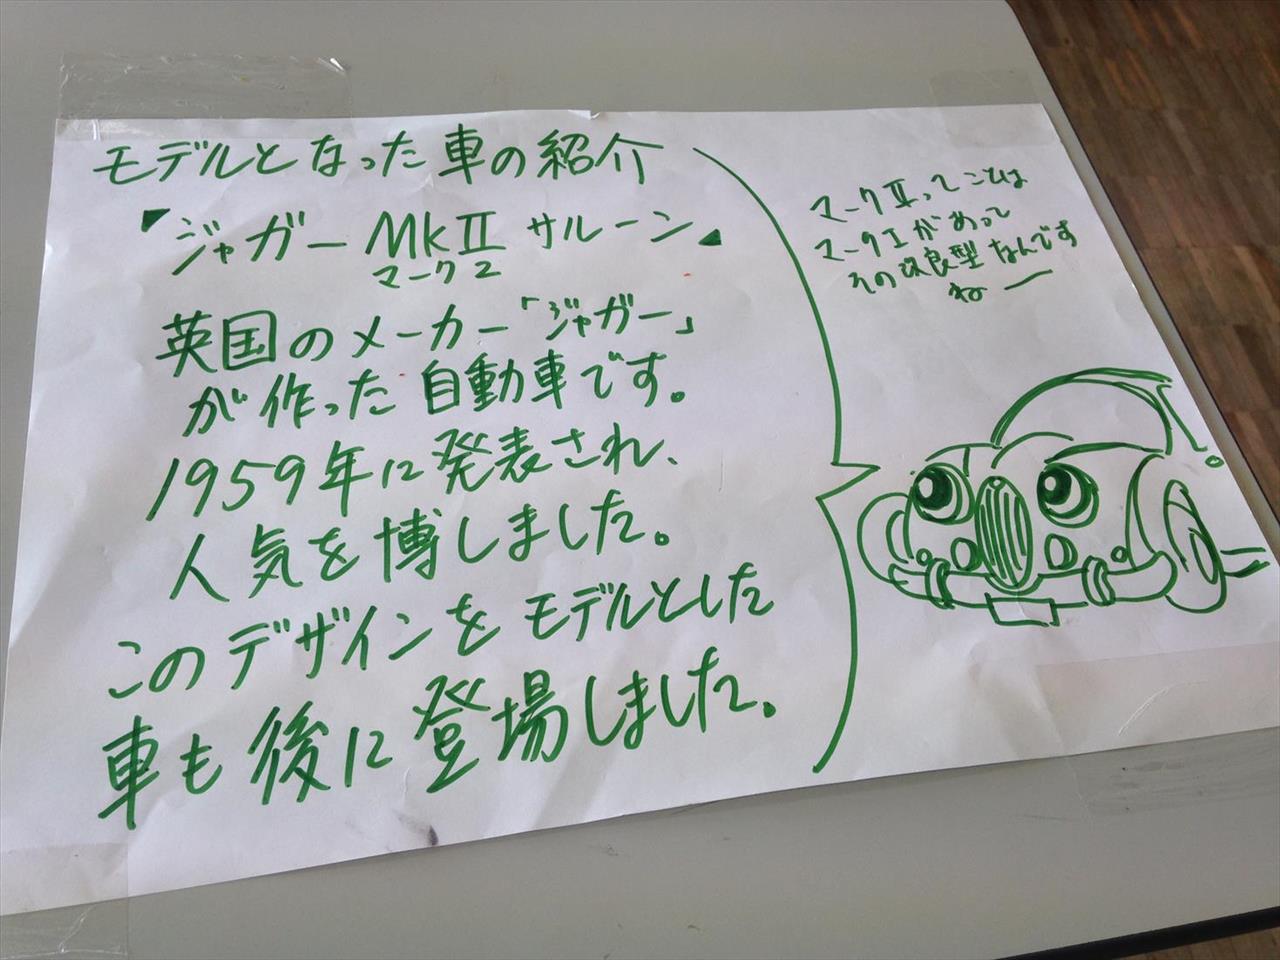 モデルとなった車の紹介
ジャガー MkⅡ サルーン
マーク2
英国のメーカー「ジャガー」
が作った自動車です。
1959年に発表され、
人気を博しました。
このデザインをモデルとした
車も後に登場しました。
マークⅡってことは
マークⅠがあって
その改良型なんです
ねー